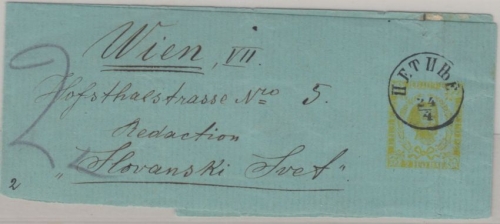 Wien, VII.
Hofsthalstrasse Nro 5.
Redaction
"Slovanski Svet".
ЦЕТИЊЕ
24
4
2
2